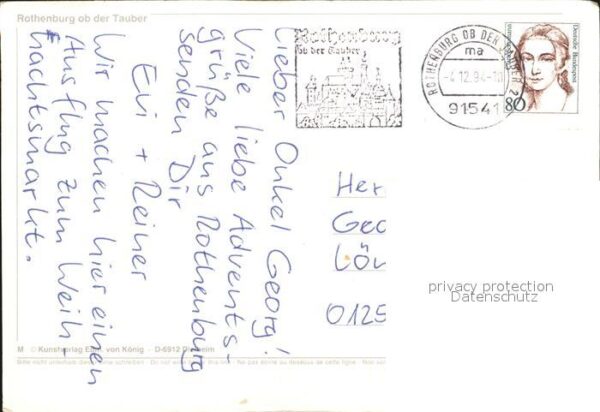 Rothenburg ob der Tauber
Rothenburg
ob der Tauber
ROTHENBURG OB DER TAUBER 2
ma
-4.12.94-10
91541
Deutsche Bundespost
80
Lieber Onkel Georg!
Viele liebe Advents-
grüße aus Rothenburg
senden Dir
Evi + Reiner
Wir machen hier einen
Ausflug zum Weih-
nachtsmarkt.
Her
Geo
Lör
0125
privacy protection
Datenschutz
M © Kunstverlag von König - D-6912
Bitte nicht unterhalb dieser Linie schreiben Do not write below this line - Ne pas écrire au dessous de cette ligne